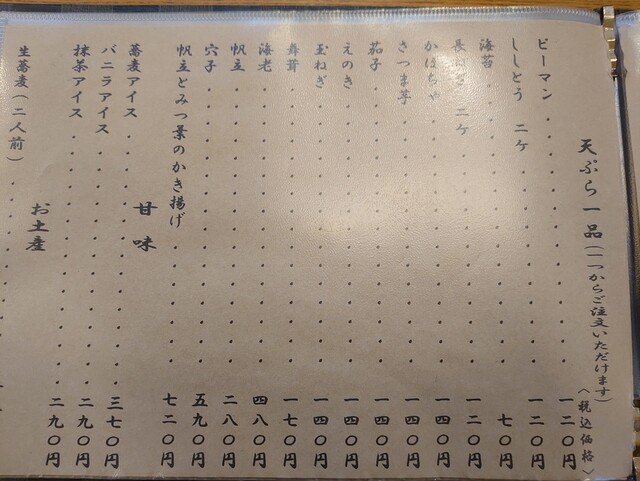 天ぷら一品（一つからご注文いただけます）
〈税込価格〉
ピーマン・・・・・・・・・・一二〇円
ししとう 二ケ・・・・・・・・一二〇円
海苔・・・・・・・・・・・七〇円
長ねぎ 二ケ・・・・・・・・・一二〇円
かぼちゃ・・・・・・・・・・一四〇円
さつま芋・・・・・・・・・・一四〇円
茄子・・・・・・・・・・・一四〇円
えのき・・・・・・・・・・・一四〇円
玉ねぎ・・・・・・・・・・・一四〇円
舞茸・・・・・・・・・・・一七〇円
海老・・・・・・・・・・・四八〇円
帆立・・・・・・・・・・・二八〇円
穴子・・・・・・・・・・・五九〇円
帆立とみつ葉のかき揚げ・・・・・・七二〇円
甘味
蕎麦アイス・・・・・・・・・・三七〇円
バニラアイス・・・・・・・・・二九〇円
抹茶アイス・・・・・・・・・・二九〇円
お土産
生蕎麦（二人前）・・・・・・・・